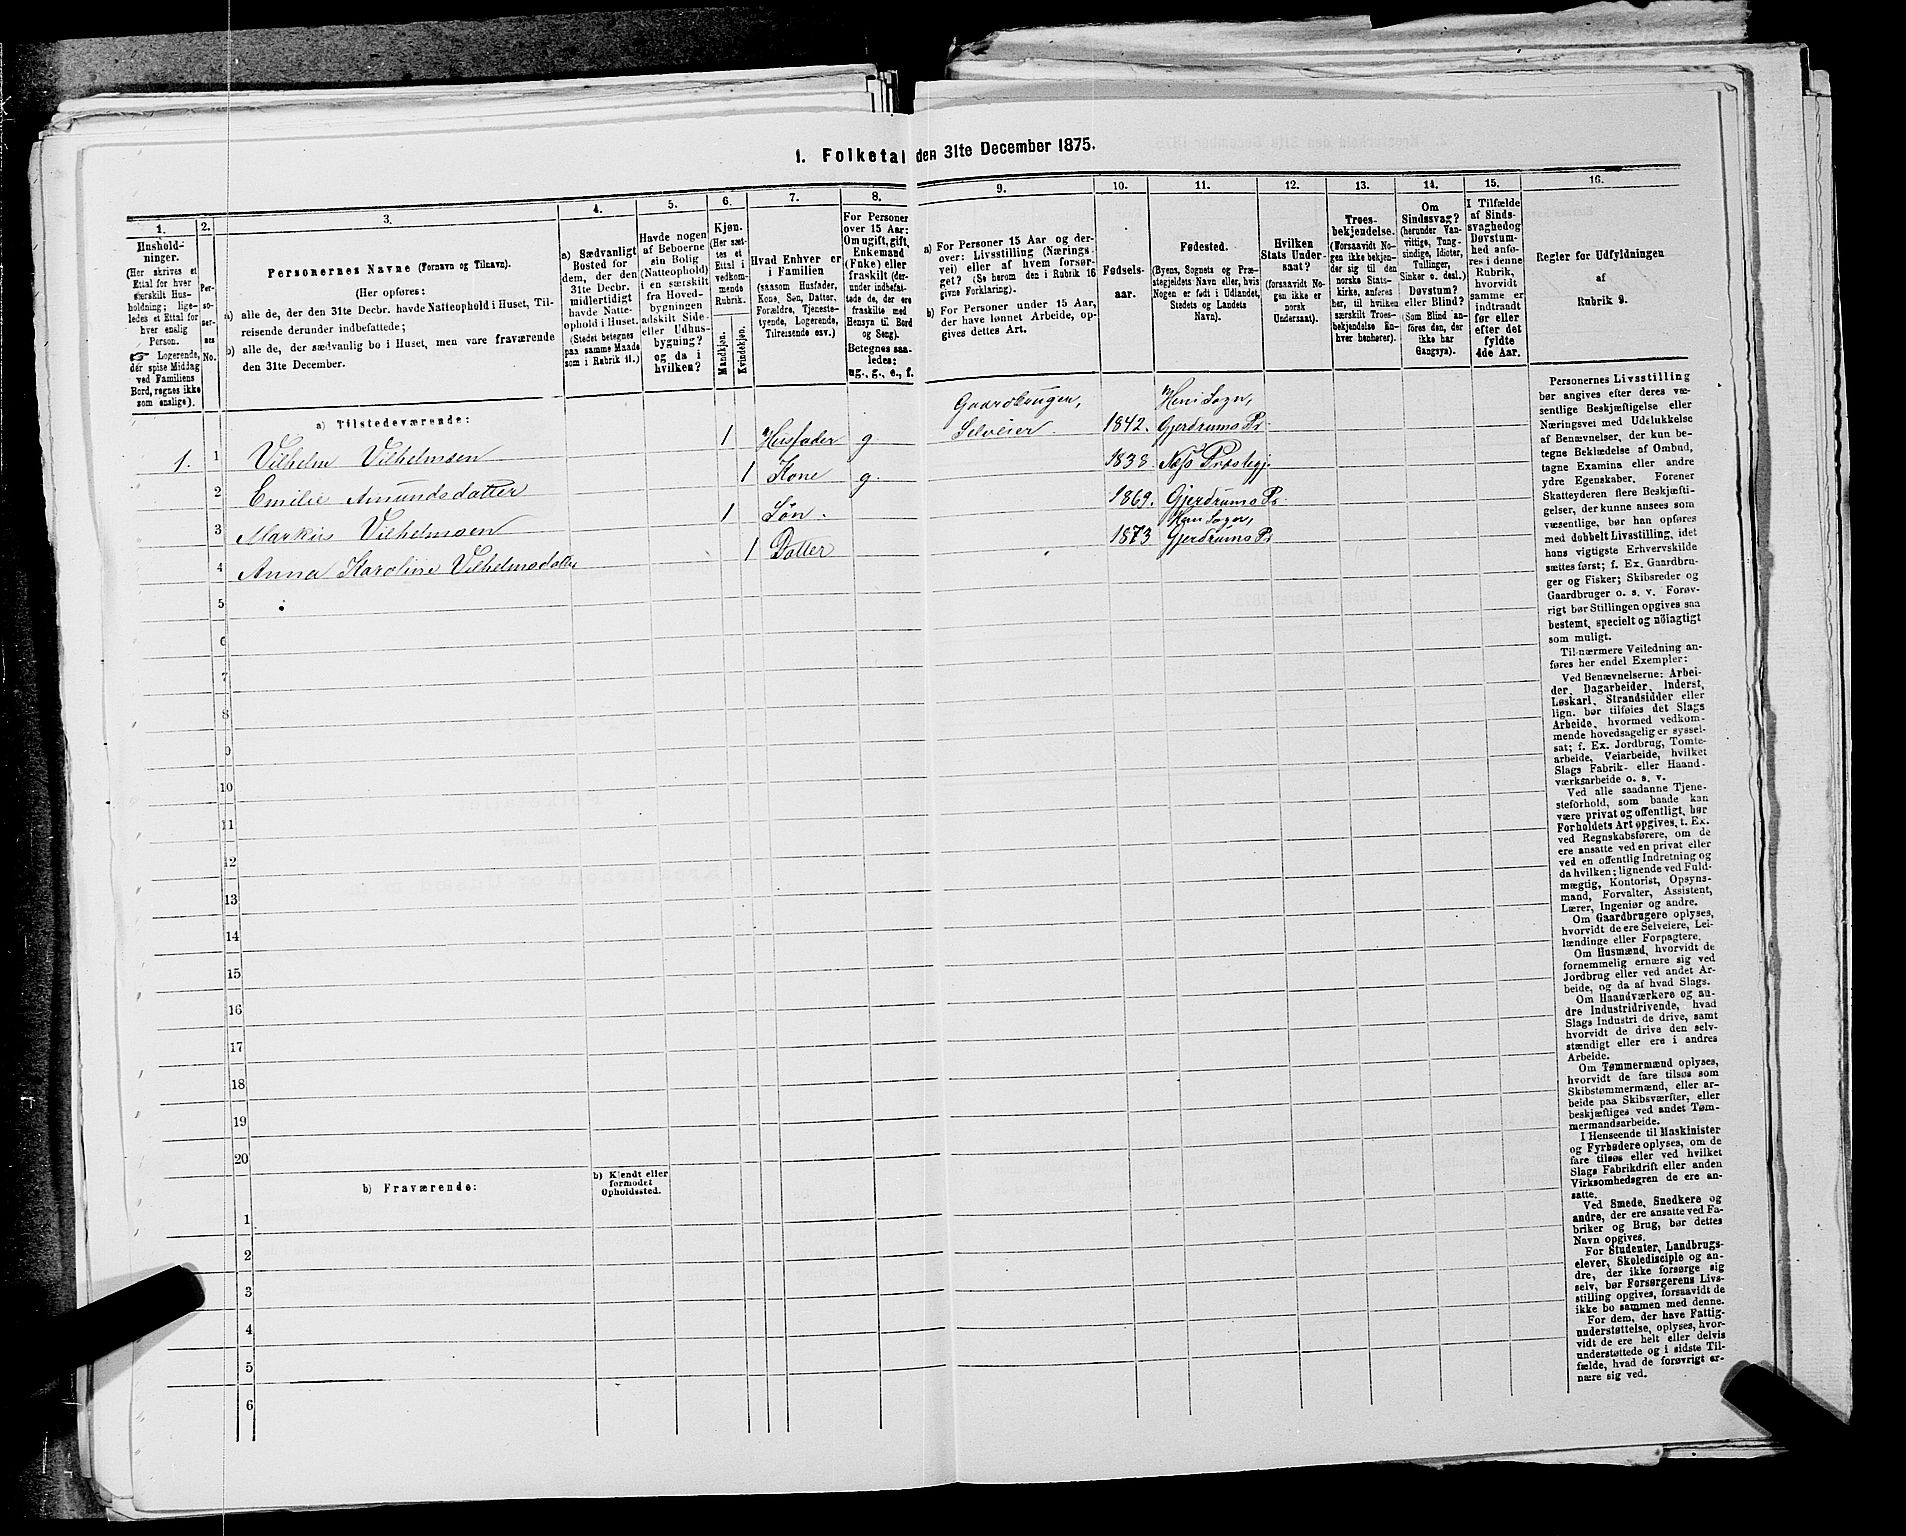 1. Folketal den 31te December 1875.
1.
Hushold-
ninger.
(Her skrives et
Ettal for hver
særskilt Hus-
holdning; lige-
ledes et Ettal for
hver enslig
Person.
Logerende,
der spise Middag
ved Familiens
Bord, regnes ikke
som enslige).
2.
Per-
so-
ner-
nes
No.
3.
Personernes Navne (Fornavn og Tilnavn).
(Her opføres:
a) alle de, der den 31te Decbr. havde Natteophold i Huset, Til-
reisende derunder indbefattede;
b) alle de, der sædvanlig bo i Huset, men vare fraværende
den 31te December.
4.
a) Sædvanligt
Bosted for
dem, der den
31te Decbr.
midlertidigt
havde Natte-
ophold i Huset.
(Stedet betegnes
paa samme Maade
som i Rubrik 11.)
5.
Havde nogen
af Beboerne
sin Bolig
(Natteophold)
i en særskilt
fra Hoved-
bygningen
adskilt Side-
eller Udhus-
bygning?
og da i
hvilken?
6.
Kjøn.
(Her sæt-
tes et
Ettal i
vedkom-
mende
Rubrik.
Mandkjøn.
Kvindekjøn.
7.
Hvad Enhver er
i Familien
(saasom Husfader,
Kone, Søn, Datter,
Forældre, Tjeneste-
tyende, Logerende,
Tilreisende osv.)
8.
For Personer
over 15 Aar:
Om ugift, gift,
Enkemand
(Enke) eller
fraskilt (der-
under indbefat-
tede de, der ere
fraskilte med
Hensyn til Bord
og Seng).
Betegnes saa-
ledes:
ug., g., e., f.
9.
a) For Personer 15 Aar og der-
over: Livsstilling (Nærings-
vei) eller af hvem forsør-
get? (Se herom den i Rubrik 16
givne Forklaring).
b) For Personer under 15 Aar,
der have lønnet Arbeide, op-
gives dettes Art.
10.
Fødsels-
aar.
11.
Fødested.
(Byens, Sognets og Præ-
stegjeldets Navn eller, hvis
Nogen er født i Udlandet,
Stedets og Landets
Navn).
12.
Hvilken
Stats Under-
saat?
(forsaavidt No-
gen ikke er
norsk
Undersaat).
13.
Troes-
bekjendelse.
(Forsaavidt No-
gen ikke bekjen-
der sig til den
norske Stats-
kirke, anføres
her, til hvilken
særskilt Troes-
bekjendelse En-
hver henhører).
14.
Om
Sindssvag?
(herunder Van-
vittige, Tung-
sindige, Idioter,
Tullinger,
Sinker o. desl.)
Døvstum?
eller Blind?
(Som Blind an-
føres den, der
ikke har
Gangsyn).
15.
I Tilfælde
af Sinds-
svaghed og
Døvstum-
hed anfø-
res i denne
Rubrik,
hvorvidt
samme er
indtraadt
før eller
efter det
fyldte
4de Aar.
16.
Regler for Udfyldningen
af
Rubrik 9.
a) Tilstedeværende:
1. 1 Vilhelm Vilhelmsen 1 Husfader g. Gaardbruger, Selveier. 1842. Heni Sogn, Gjerdrums Pr.
2 Emilie Amundsdatter 1 Kone g. 1838 Næs Præstegj.
3 Markus Vilhelmsen 1 Søn. 1869. Gjerdrums Pr.
4 Anna Karoline Vilhelmsdatter 1 Datter 1873 Heni Sogn, Gjerdrums Pr
5
6
7
8
9
10
11
12
13
14
15
16
17
18
19
20
b) Fraværende:
b) Kjendt eller
formodet
Opholdssted.
1
2
3
4
5
6
Personernes Livsstilling
bør angives efter deres væ-
sentlige Beskjæftigelse eller
Næringsvei med Udelukkelse
af Benævnelser, der kun be-
tegne Beklædelse af Ombud,
tagne Examina eller andre
ydre Egenskaber. Forener
Skatteyderen flere Beskjæfti-
gelser, der kunne ansees som
væsentlige, bør han opføres
med dobbelt Livsstilling, idet
hans vigtigste Erhvervskilde
sættes først; f. Ex. Gaardbru-
ger og Fisker; Skibsreder og
Gaardbruger o. s. v. Forøv-
rigt bør Stillingen opgives saa
bestemt, specielt og nöiagtigt
som muligt.
Til nærmere Veiledning an-
føres her endel Exempler:
Ved Benævnelserne: Arbei-
der, Dagarbeider, Inderst,
Løskarl, Strandsidder eller
lign. bør tilføies det Slags
Arbeide, hvormed vedkom-
mende hovedsagelig er syssel-
sat; f. Ex. Jordbrug, Tomte-
arbeide, Veiarbeide, hvilket
Slags Fabrik- eller Haand-
værksarbeide o. s. v.
Ved alle saadanne Tjene-
steforhold, som baade kan
være privat og offentligt, bør
Forholdets Art opgives, t. Ex.
ved Regnskabsførere, om de
ere ansatte ved en privat eller
ved en offentlig Indretning og
da hvilken; lignende ved Fuld-
mægtig, Kontorist, Opsyns-
mand, Forvalter, Assistent,
Lærer, Ingeniør og andre.
Om Gaardbrugere oplyses,
hvorvidt de ere Selveiere, Lei-
lændinge eller Forpagtere.
Om Husmænd, hvorvidt de
fornemmelig ernære sig ved
Jordbrug eller ved andet Ar-
beide, og da af hvad Slags.
Om Haandværkere og an-
dre Industridrivende, hvad
Slags Industri de drive, samt
hvorvidt de drive den selv-
stændigt eller ere i andres
Arbeide.
Om Tømmermænd oplyses,
hvorvidt de fare tilsøs som
Skibstømmermænd, eller ar-
beide paa Skibsværfter, eller
beskjæftiges ved andet Tøm-
mermandsarbeide.
I Henseende til Maskinister
og Fyrbødere oplyses, om de
fare tilsøs eller ved hvilket
Slags Fabrikdrift eller anden
Virksomhedsgren de ere an-
satte.
Ved Smede, Snedkere og
andre, der ere ansatte ved Fa-
briker og Brug, bør dettes
Navn opgives.
For Studenter, Landbrugs-
elever, Skoledisciple og an-
dre, der ikke forsørge sig
selv, bør Forsørgerens Livs-
stilling opgives, forsaavidt de
ikke bo sammen med denne.
For dem, der have Fattig-
understøttelse, oplyses, hvor-
vidt de ere helt eller delvis
understøttede og i sidste Til-
fælde, hvad de forøvrigt er-
nære sig ved.